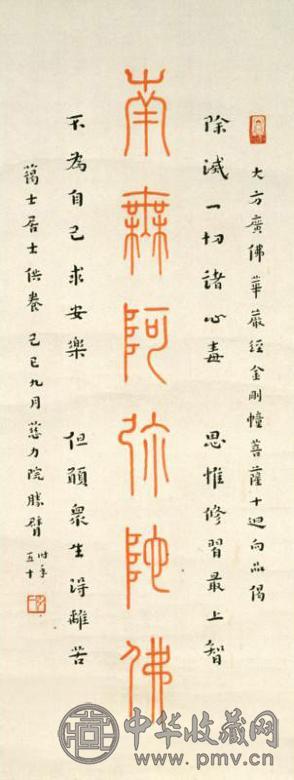 大方廣佛華嚴經金剛幢菩薩十迴向品偈
除滅一切諸心毒 思惟修習最上智
南無阿彌陀佛
不為自己求安樂 但願衆生得離苦
藹士居士供養 己巳九月慈力院勝臂 时年五十
中华收藏网
www.pmv.cn